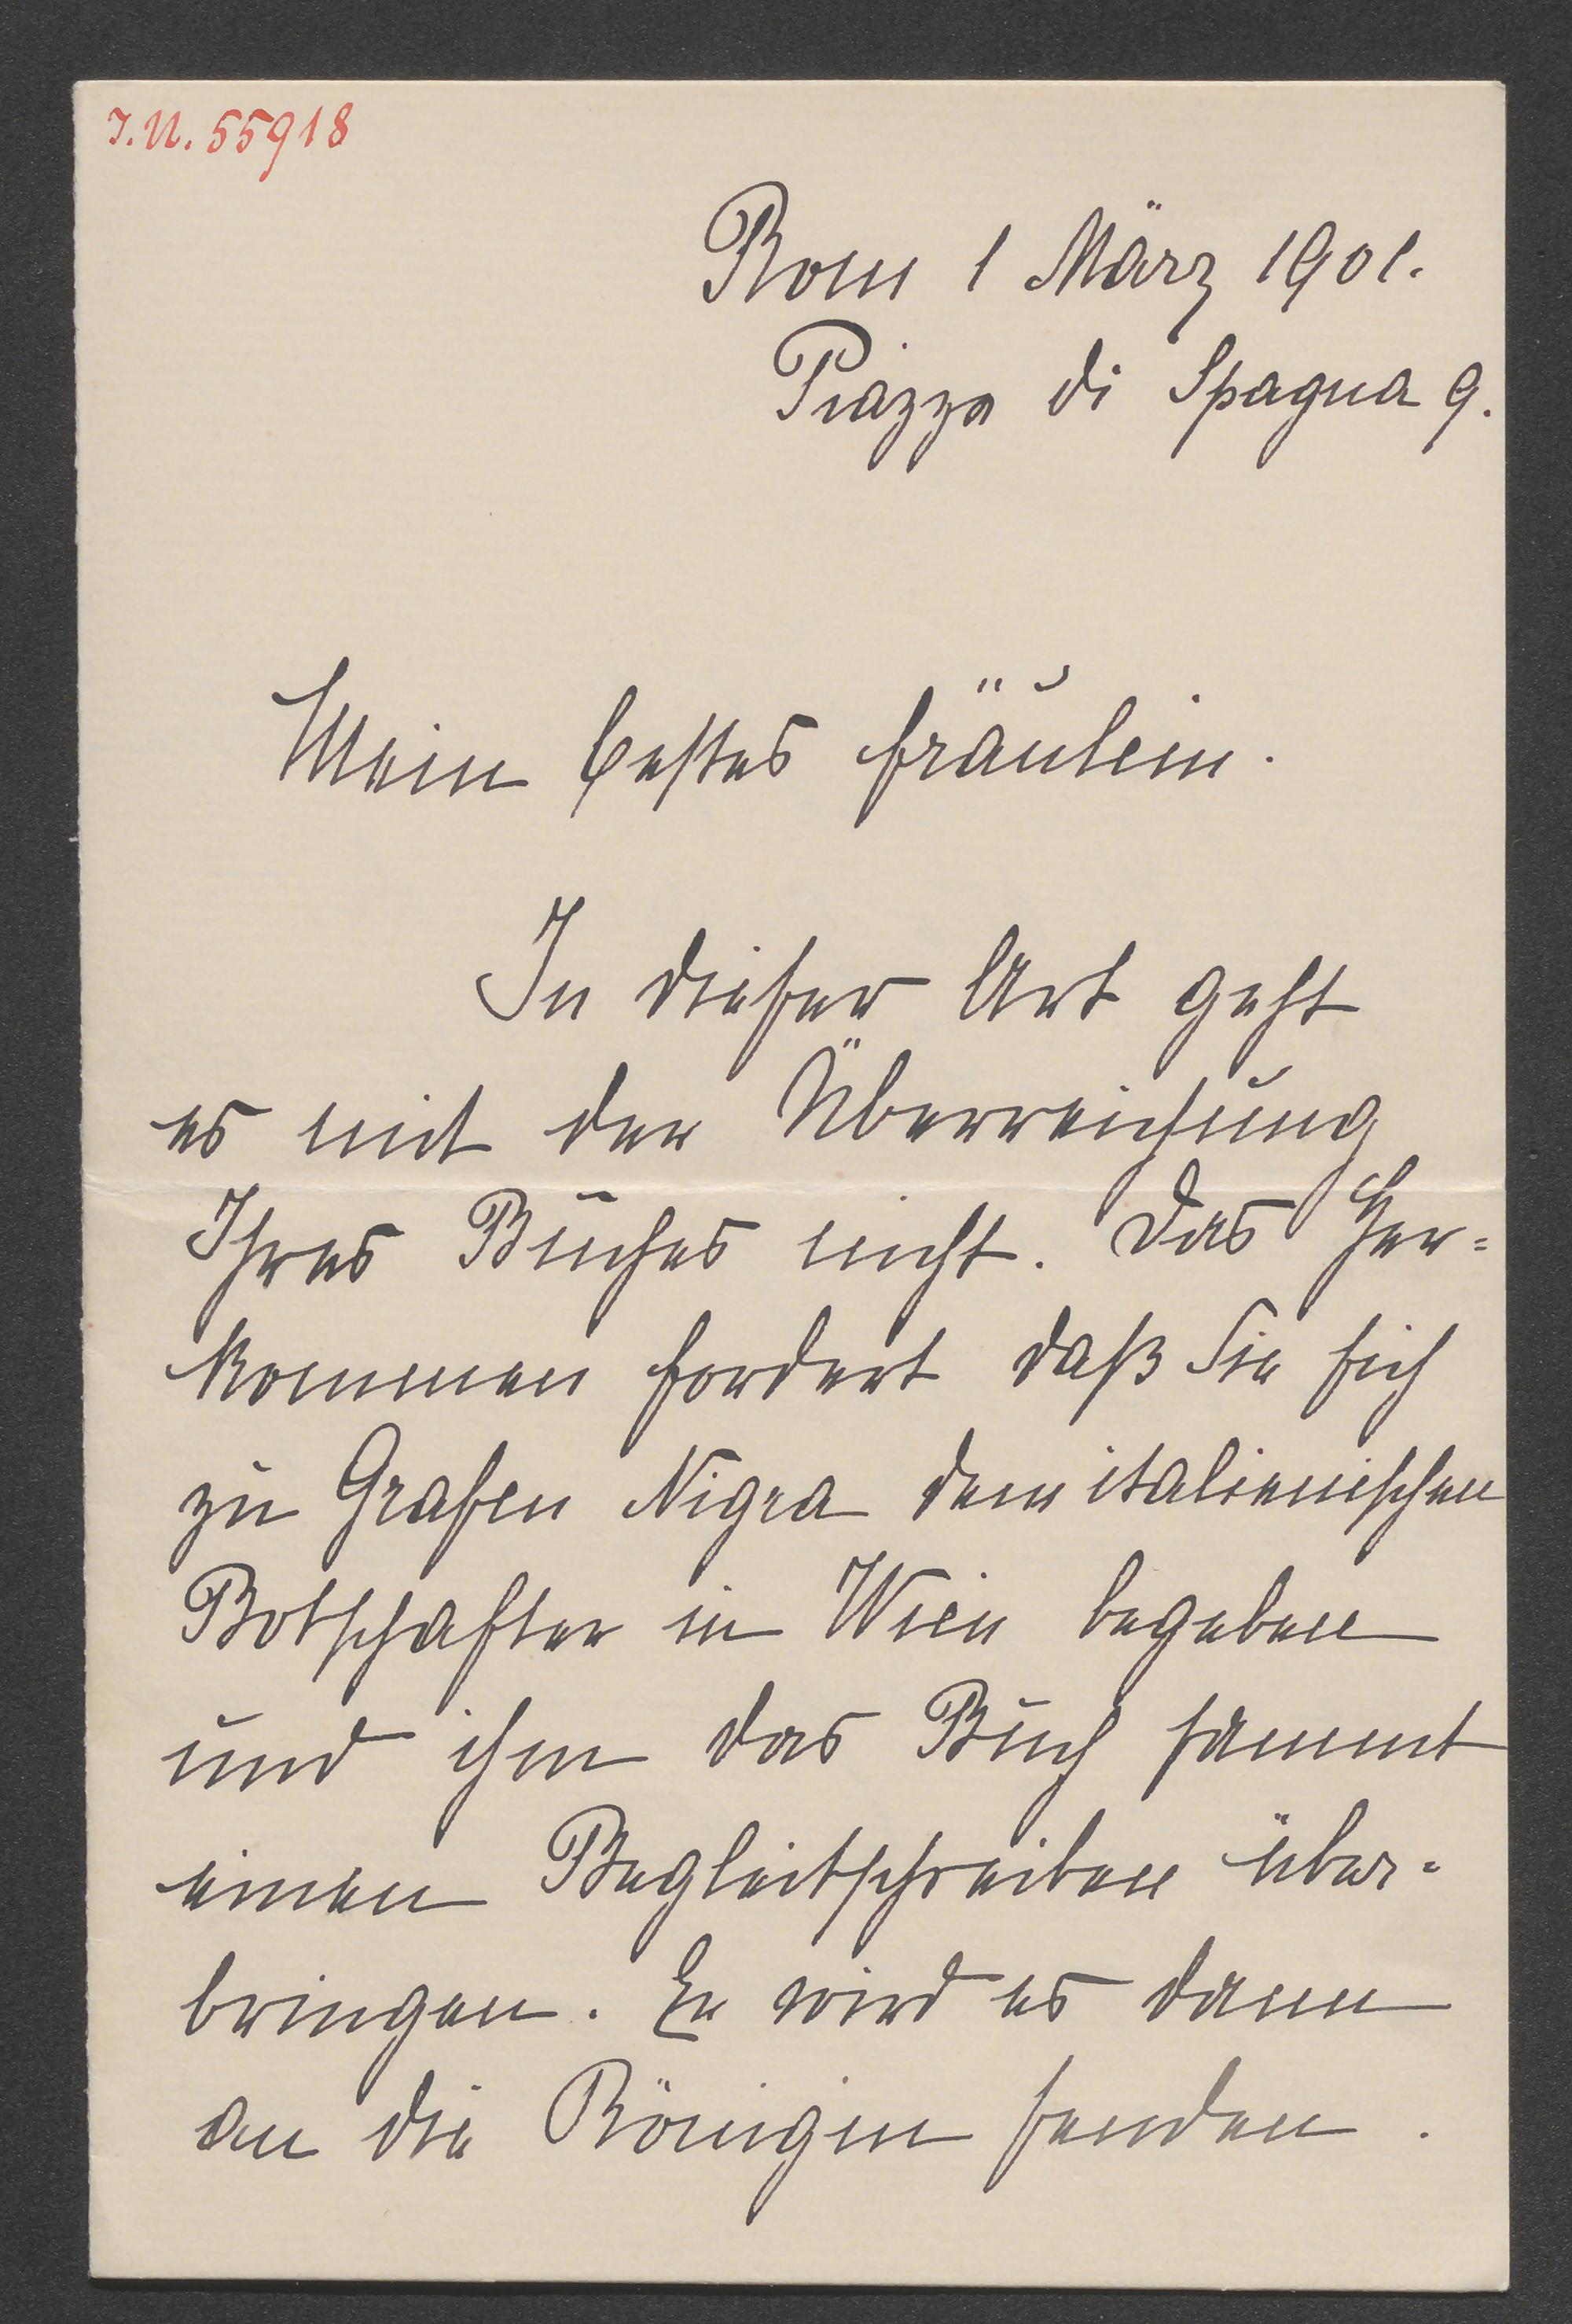 I.N. 55918
Rom 1 März 1901.
Piazza di Spagna 9.
Mein bestes Fräulein.
In dieser Art geht
es mit der Überreichung
Ihres Buches nicht. Das Her=
kommen fordert daß Sie sich
zu Grafen Nigra dem italienischen
Botschafter in Wien begeben
und ihm das Buch sammt
einem Begleitschreiben über=
bringen. Er wird es dann
an die Königin senden.